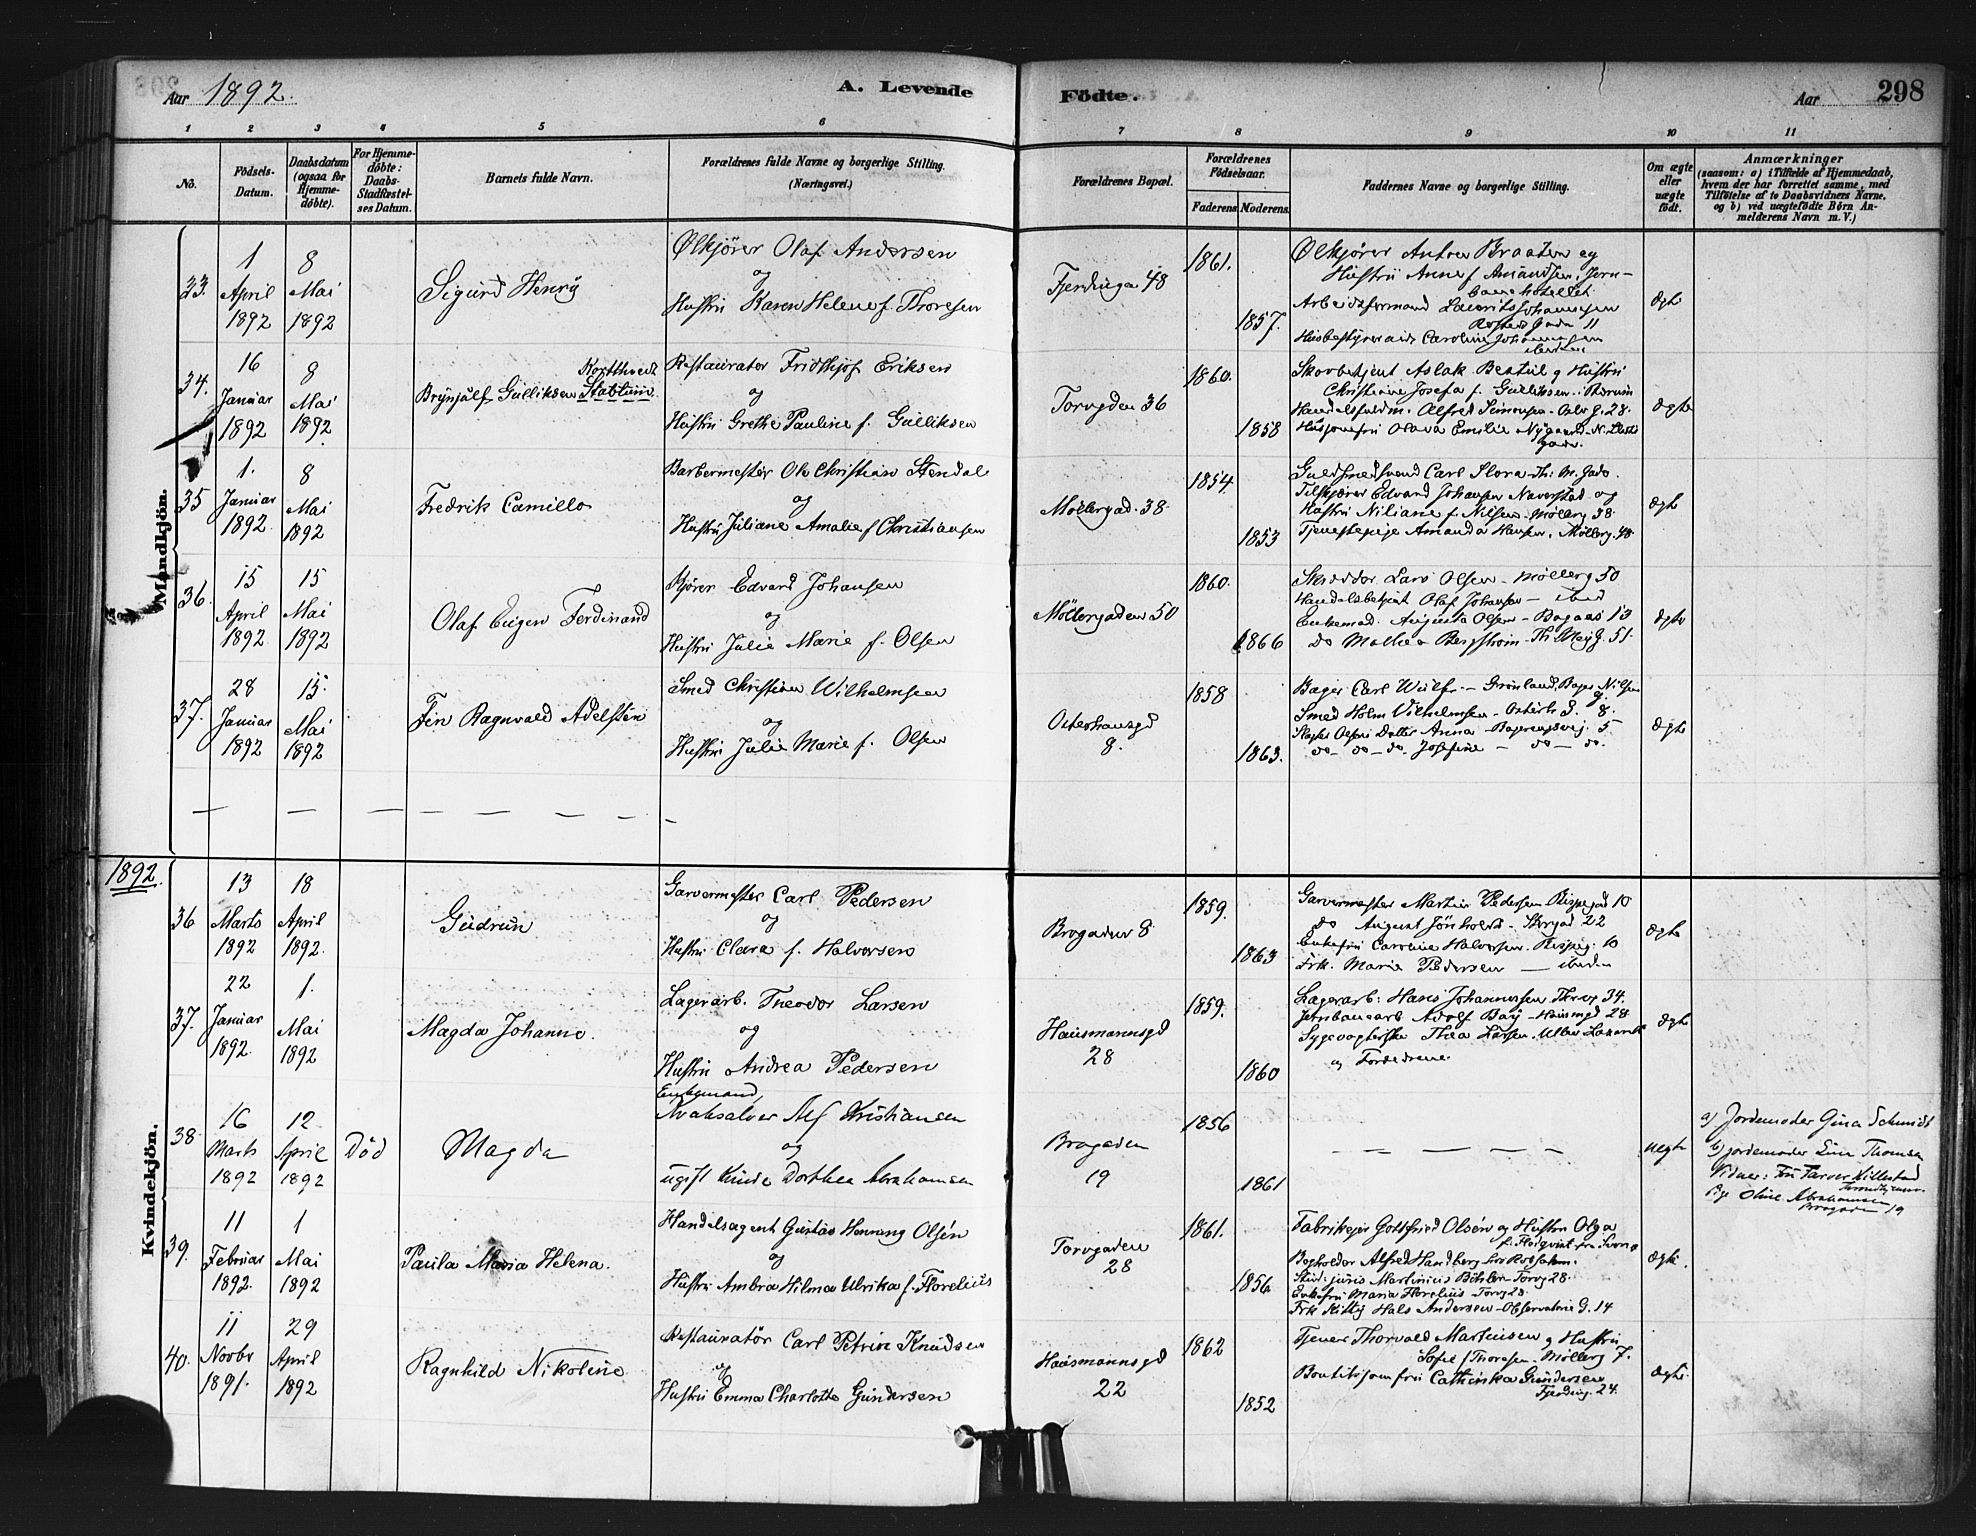 Aar 1892.
A. Levende
Födte.
Aar
298
1 2 3 4 5 6 7 8 9 10 11
No.
Födsels-Datum.
Daabsdatum (ogsaa for Hjemme-döbte).
For Hjemme-döbte: Daabs-Stadfæstel-ses Datum.
Barnets fulde Navn.
Forældrenes fulde Navne og borgerlige Stilling. (Næringsvei.)
Forældrenes Bopæl.
Forældrenes Födselsaar.
Faderens.
Moderens.
Faddernes Navne og borgerlige Stilling.
Om ægte eller uægte födt.
Anmærkninger
(saasom: a) i Tilfælde af Hjemmedaab, hvem der har forrettet samme, med Tilföielse af to Daabsvidners Navne, og b) ved uægtefödte Börn An-melderens Navn m. V.)
Mandkjön.
33.
1 April 1892
8 Mai 1892
Sigurd Henry
Ølkjører Olaf Andersen
og
Hustru Karen Helene f. Thoresen
Fjerdingen 48
1861.
1857.
Ølkjører Anton Braaten og
Hustru Anne f. Amundsen, Jern-
banehotellet
Arbeidsformand Lauritz Johannesen
Gade 11
Husbestyrerinde Caroline Johannesen
ibidem
Ægte
34.
16 Januar 1892
8 Mai 1892
Brynjulf Gulliksen Stabrun
Restauratør Fridthjof Eriksen
og
Hustru Grethe Pauline f. Gulliksen
Torvgden 36
1860.
1858
Skovbetjent Aslak Beatul og Hustru
Christiane Josefa f. Gulliksen
Handelsfuldm. Alfred Simonsen - Oslo g. 28.
Husjomfru Olava Emilie Nygaard - N. Slots
gade.
Ægte
35
1. Januar 1892
8 Mai 1892
Fredrik Camillo
Barbermester Ole Christian Stendal
og
Hustru Juliane Amalie f Christiansen
Møllergad. 38.
1854.
1853
Guldsmedsvend Carl Flora Th. M. Gade.
Edvard Johansen Naverstad og
Hustru Niliane f. Nilsen Møllerg 38.
Tjenestepige Amanda Hansen, Møllerg. 48
Ægte
36.
15 April 1892
15 Mai 1892
Olaf Eugen Ferdinand
Kjører Edvard Johansen
og
Hustru Julie Marie f. Olsen
Møllergaden 50
1860.
1866
Skrædder Lars Olsen - Møllerg 50
Handelsbetjent Olaf Johansen - ibid
Enkemad. Augusta Olsen - Bogaas 13
Do Mathea Bergstrøm - Th. Meyg. 51.
Ægte
37.
28 Januar 1892
15. Mai 1892
Fin Ragnvald Adelsten
Smed Christian Wilhelmsen
og
Hustru Julie Marie f. Olsen
Osterhausgd
8.
1858
1863.
Bager Carl Wulf - Grønland, Bager Nilsen
Smed Holm Wilhelmsen - Osterh. g. 8.
Olsens Datter Anna - Bagerengsvej. 5
do - do - do. Josefine - do - do.
Ægte
1892.
Kvindekjön.
36
13 Marts 1892
18 April 1892.
Gudrun
Garvermester Carl Pedersen
og
Hustru Clara f. Halvorsen
Brogaden 8.
1859.
1863
Garvermester Martin Pedersen Rispegad 10
Do August Jönholdt - Storgad 22
Enkefru Caroline Halvorsen. Rispeg. 10
Frk. Marie Pedersen - ibidem
Ægte
37.
22 Januar 1892.
1. Mai 1892
Magda Johanne.
Lagerarb. Theodor Larsen
og
Hustru Andrea Pedersen
Hausmannsgd
28
1859.
1860
Lagerarb: Hans Johannessen Throg 34.
Jernbanearb Adolf Bay - Hausmgd 28
Sygevogterske Thea Larsen. Ullev. Lazareth
og Forældrene.
Ægte
38
16 Marts 1892
12 April 1892
Død
Magda
Enkemand,
Kvaksalver Alf Kristiansen
og
ugift Kvinde Dorthea Abrahamsen
Brogaden
19
1856
1861
uægte
a) Jordemoder Gina Schmidt
b) Jordemoder Line Thomsen
Vidner: Fru Farver Hillestad
Pige Oline Abrahamsen
Brogaden 19
39.
11 Februar 1892.
1 Mai 1892
Paula Maria Helena.
Handelsagent Gustav Henning Olsén
og
Hustru Ambra Hilma Ulrika f. Florelius
Torvgaden
28
1861.
1856
Fabrikejer Gottfried Olsén og Hustru Olga
f. Flodqvist fra Sverig
Bogholder Alfred Handberg
Stud. juris Martinius Bøhler Torvg 28.
Enkefru Maria Florelius - Torvg 28.
Frk Kitty Hals Andersen - Observatorie G. 14
Ægte.
40.
11 Novbr 1891.
29 April 1892
Ragnhild Nikoline
Restauratør Carl Petrin Knudsen
og
Hustru Emma Charlotte Gundersen
Hausmannsgd
22
1862
1852
Tjener Thorvald Martinsen og Hustru
Sofie f Thoresen - Møllerg 7.
Boutikjomfru Cathinka Gundersen
Fjerding. 24.
Ægte.